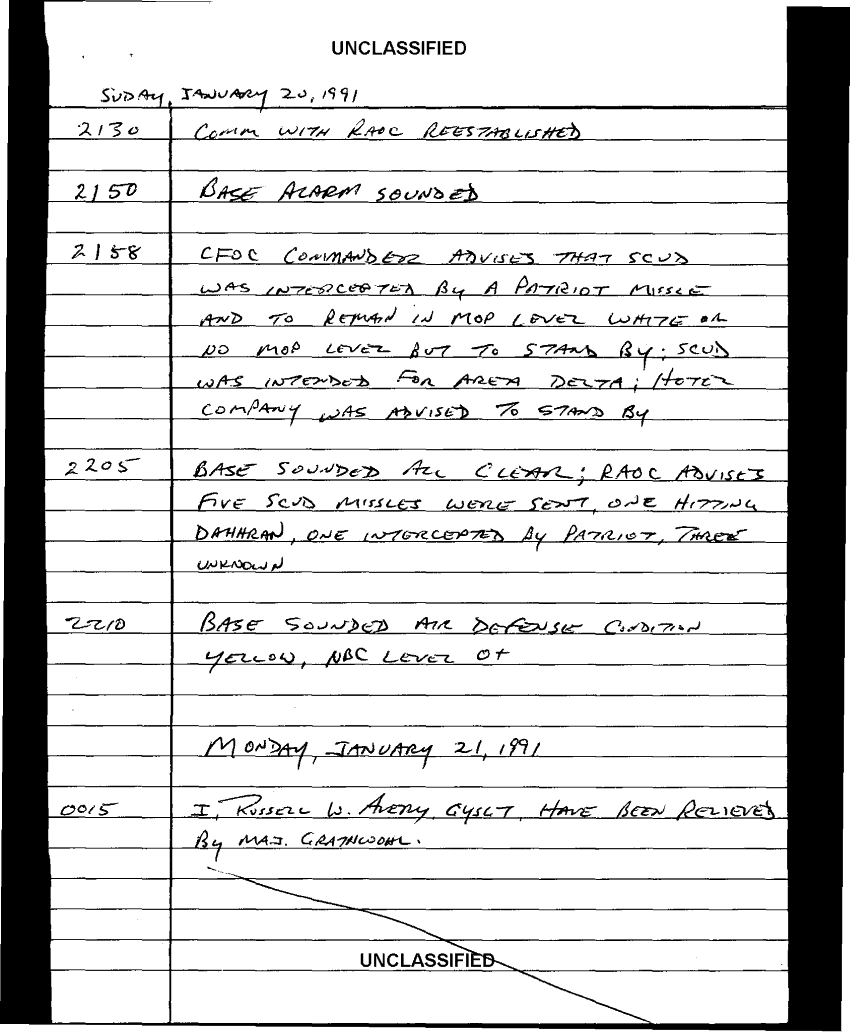 UNCLASSIFIED
SUDAY, JANUARY 20, 1991
2130 COMM WITH RAOC REESTABLISHED
2150 BASE ALARM SOUNDED
2158 CFOC COMMANDER ADVISES THAT SCUD
WAS INTERCEPTED BY A PATRIOT MISSLE
AND TO REMAIN IN MOP LEVEL WHITE OR
NO MOP LEVEL BUT TO STAND BY; SCUD
WAS INTENDED FOR AREA DELTA; HOTEL
COMPANY WAS ADVISED TO STAND BY
2205 BASE SOUNDED ALL CLEAR; RAOC ADVISES
FIVE SCUD MISSLES WERE SENT, ONE HITTING
DAHHRAN, ONE INTERCEPTED BY PATRIOT, THREE
UNKNOWN
2210 BASE SOUNDED AIR DEFENSE CONDITION
YELLOW, NBC LEVEL 0+
MONDAY, JANUARY 21, 1991
0015 I, RUSSELL W. AVERY, GYSGT, HAVE BEEN RELIEVED
BY MAJ. GRATHWOHL.
UNCLASSIFIED